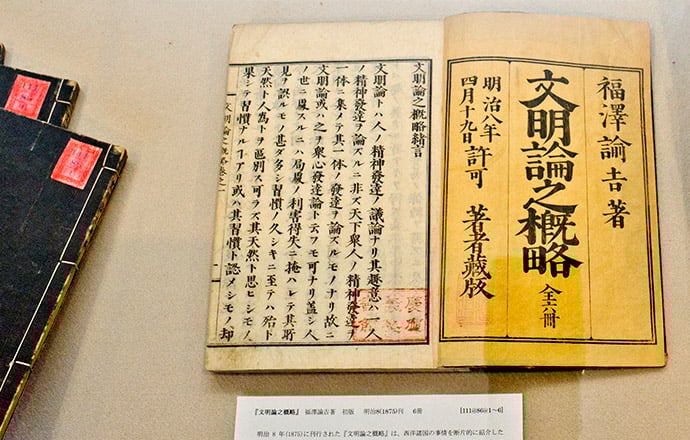 福澤諭吉著
文明論之概略 全六冊
明治八年
四月十九日許可 著者藏版
文明論之概略緒言
文明論トハ人ノ精神發達ノ議論ナリ其趣意ハ一人
ノ精神發達ヲ論ズルニ非ズ天下衆人ノ精神發達ヲ
一体ニ集メテ其一体ノ發達ヲ論ズルモノナリ故ニ
文明論或ハ之ヲ衆心發達論ト云フモ可ナリ蓋シ人
ノ世ニ處スルニハ局處ノ利害得失ニ掩ハレテ其所
見ヲ誤ルモノ甚ダ多シ習慣ノ久シキニ至テハ殆ド
天然ト人為トヲ區別ス可ラズ其天然ト思ヒシモノ
果シテ習慣ナルヿアリ或ハ其習慣ト認メシモノ却
文明論之概略卷之一
『文明論之概略』 福澤諭吉著 初版 明治8(1875)刊 6冊 [111@86@1~6]
明治 8 年(1875)に刊行された『文明論之概略』は、西洋諸国の事情を断片的に紹介した